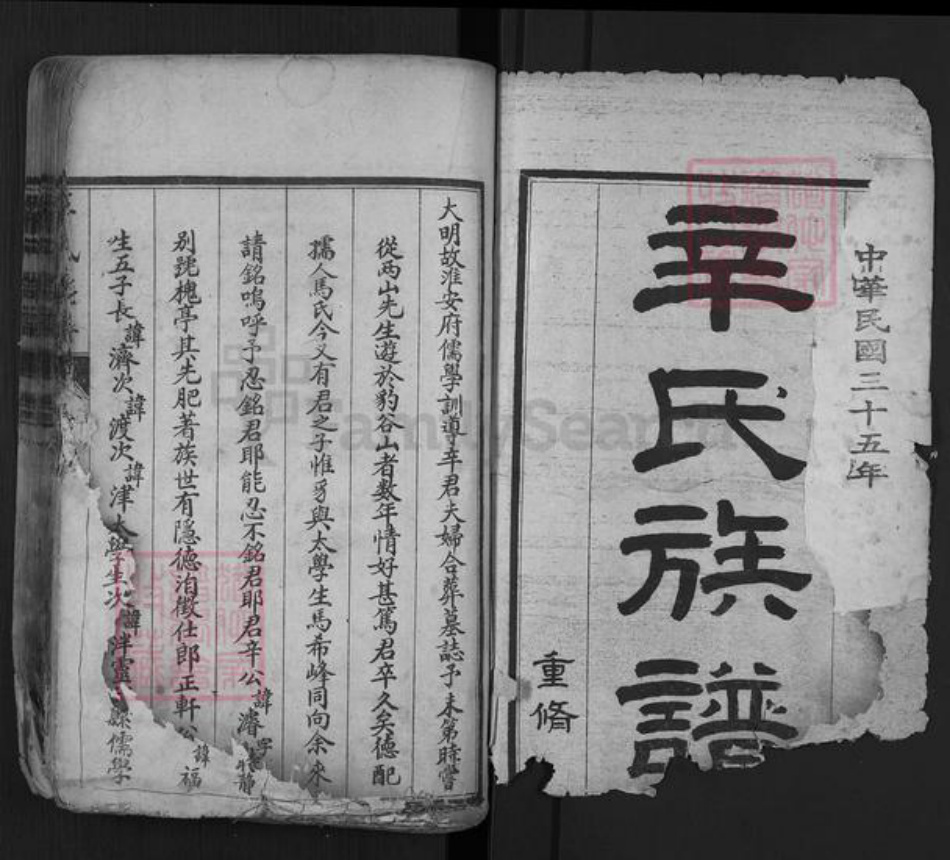 中華民國三十五年
辛氏族譜
重脩
大明故淮安府儒學訓導辛君夫婦合葬墓誌予未第時嘗
從西山先生遊於豹谷山者数年情好甚篤君卒久矣德配
孺人馬氏今又有君之子惟豸與太學生馬希峰同向余來
請銘嗚呼予忍銘君耶能忍不銘君耶君辛公諱濬字靜
别號槐亭其先肥著族世有隱德洎徵仕郎正軒公諱福
生五子長諱濟次諱渡次諱津太學生次諱泮靈縣儒學
FamilySearch